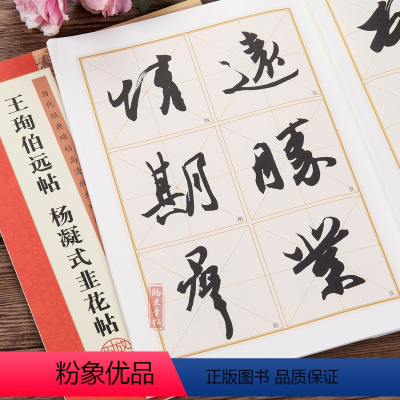 历代经典碑帖高清
王珣伯远帖 杨凝式韭花帖
遠勝業
情期羣
粉象优品
正版图书 品质保证